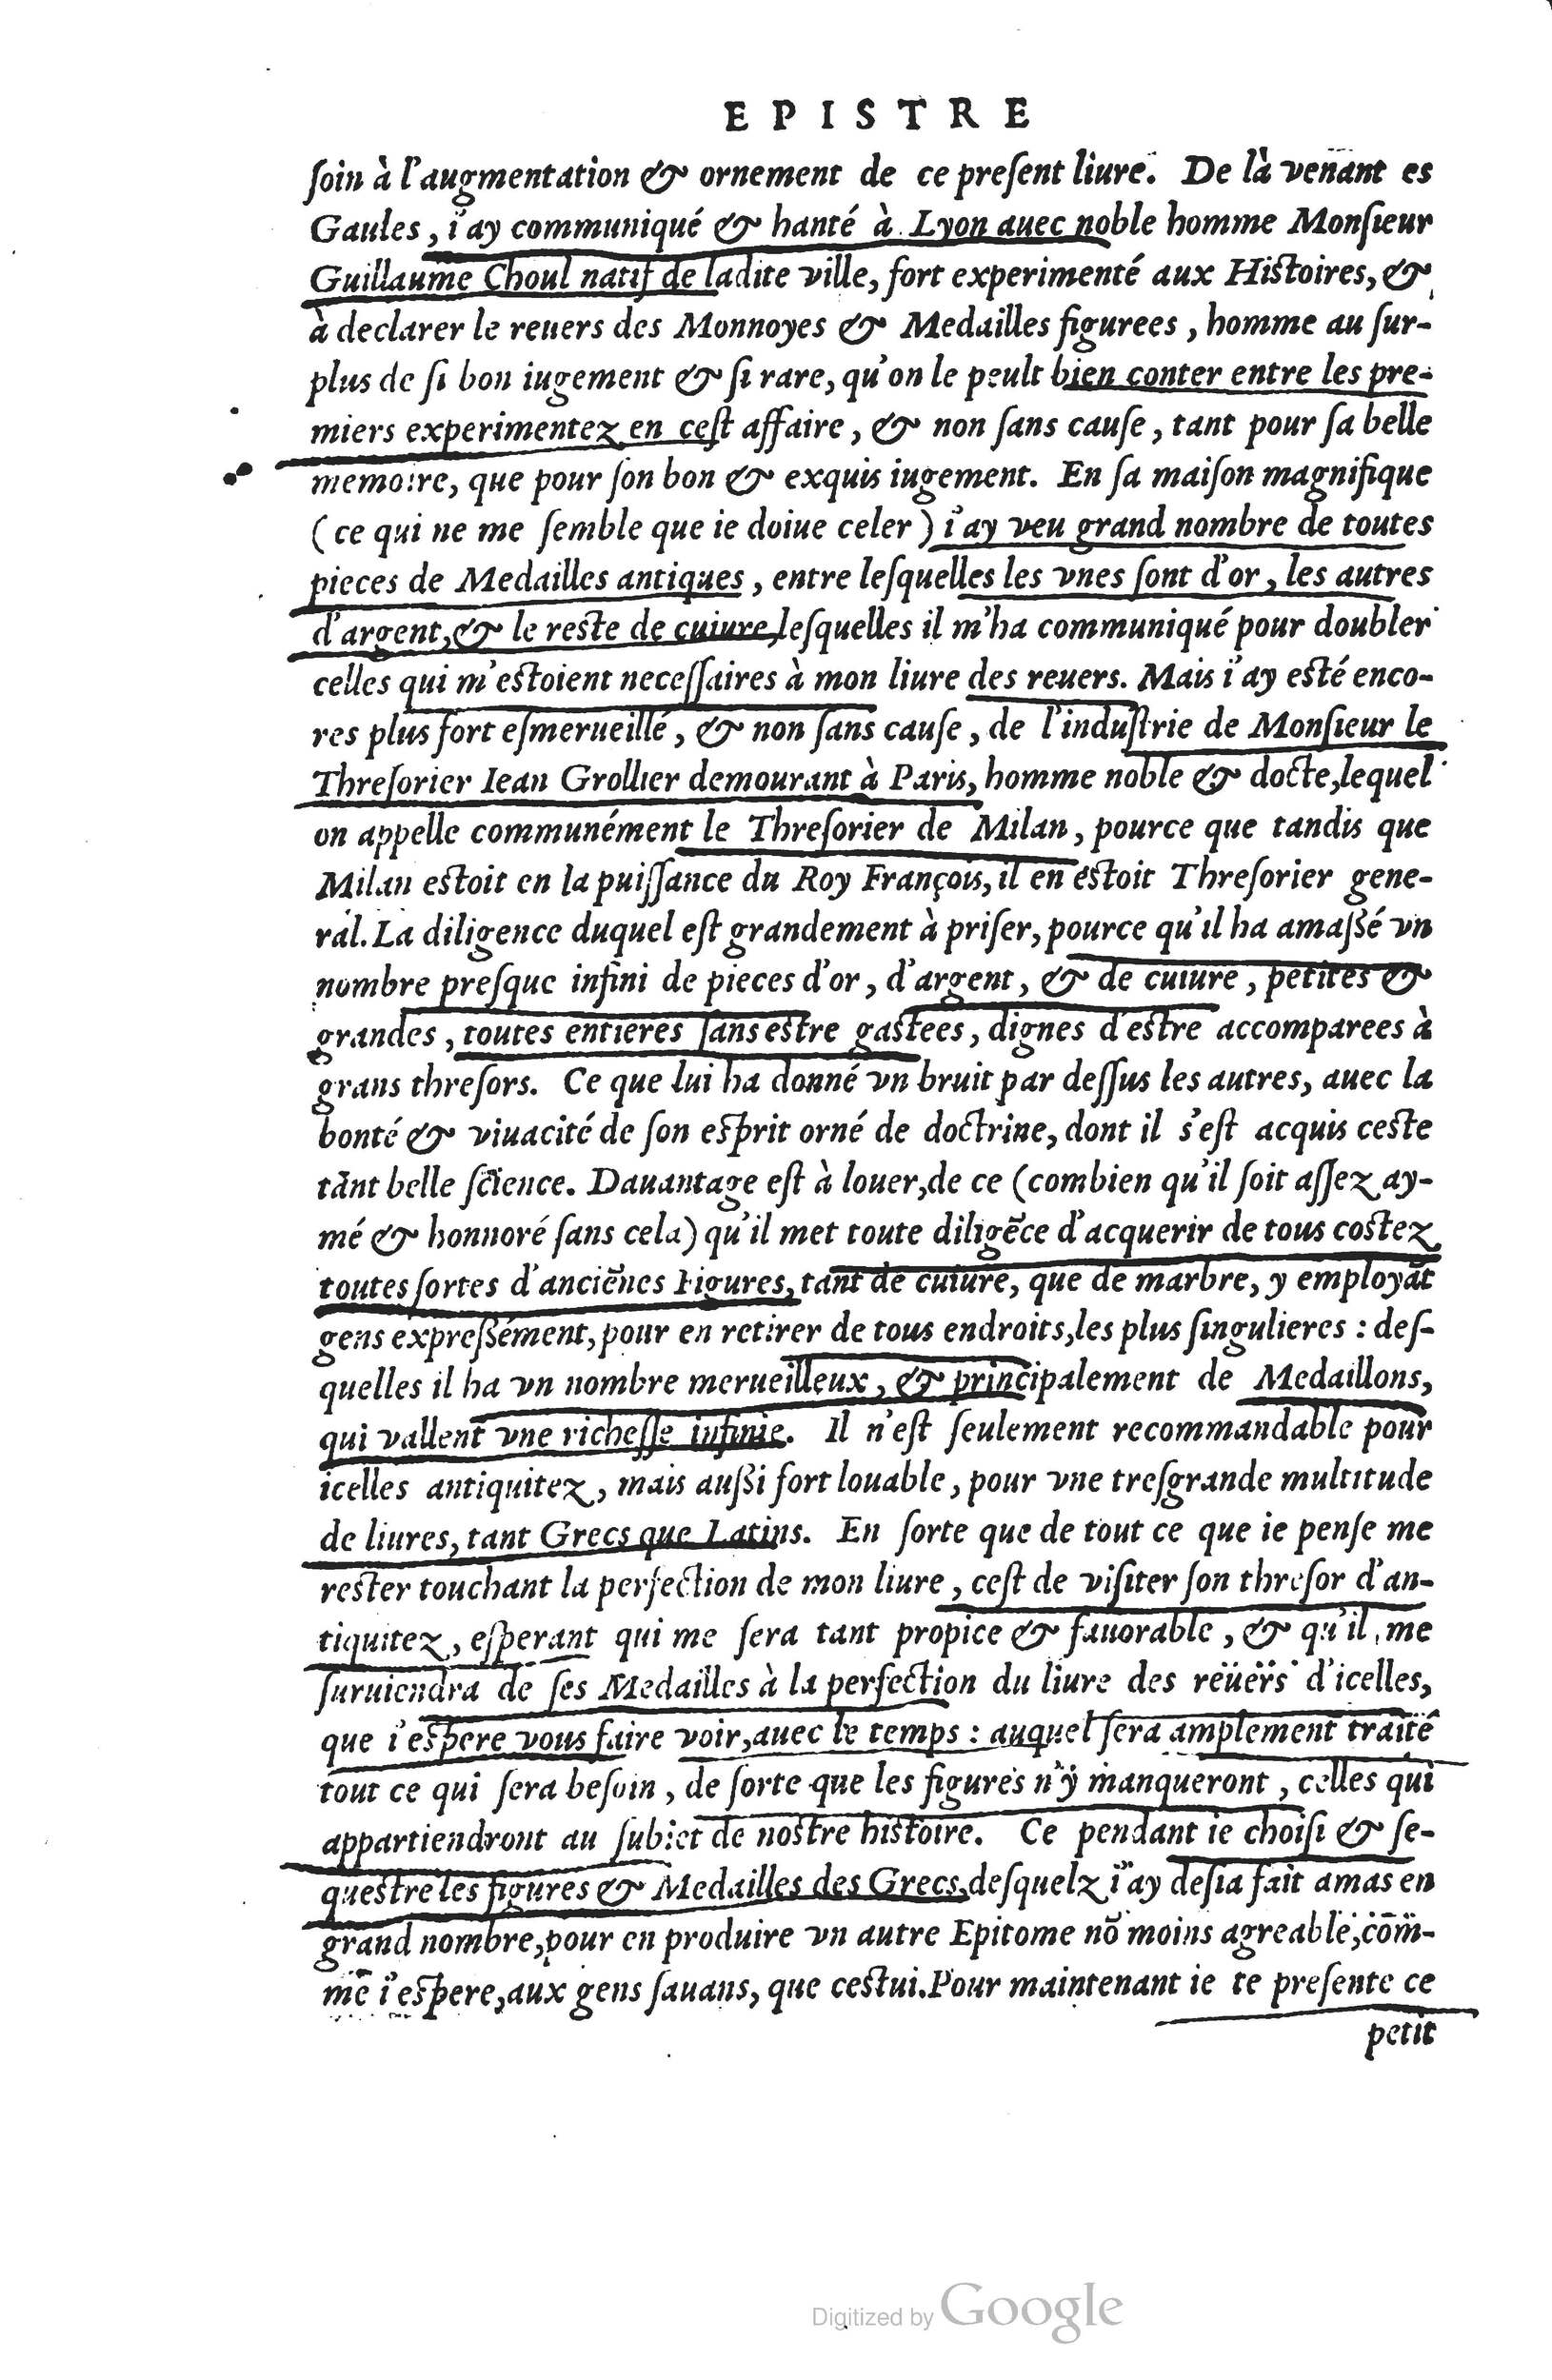 EPISTRE
ſoin à l'augmentation & ornement de ce preſent liure. De là venant es
Gaules, i'ay communiqué & hanté à Lyon auec noble homme Monſieur
Guillaume Choul natif de ladite ville, fort experimenté aux Histoires, &
à declarer le reuers des Monnoyes & Medailles figurees, homme au ſur-
plus de ſi bon iugement & ſi rare, qu'on le peult bien conter entre les pre-
miers experimentez en ceſt affaire, & non ſans cauſe, tant pour ſa belle
memoire, que pour ſon bon & exquis iugement. En ſa maiſon magnifique
(ce qui ne me ſemble que ie doiue celer) i'ay veu grand nombre de toutes
pieces de Medailles antiques, entre leſquelles les vnes ſont d'or, les autres
d'argent, & le reste de cuiure, leſquelles il m'ha communiqué pour doubler
celles qui m'estoient neceſſaires à mon liure des reuers. Mais i'ay esté enco-
res plus fort eſmerueillé, & non ſans cauſe, de l'induſtrie de Monſieur le
Threſorier Iean Grollier demourant à Paris, homme noble & docte, lequel
on appelle communément le Threſorier de Milan, pource que tandis que
Milan estoit en la puiſſance du Roy François, il en estoit Threſorier gene-
ral. La diligence duquel eſt grandement à priſer, pource qu'il ha amaßé vn
nombre preſque infini de pieces d'or, d'argent, & de cuiure, petites &
grandes, toutes entieres ſans estre gastees, dignes d'estre accomparees à
grans threſors. Ce que lui ha donné vn bruit par deſſus les autres, auec la
bonté & viuacité de ſon eſprit orné de doctrine, dont il s'eſt acquis ceste
tant belle ſcience. Dauantage eſt à louer, de ce (combien qu'il ſoit aſſez ay-
mé & honnoré ſans cela) qu'il met toute diligēce d'acquerir de tous costez
toutes ſortes d'anciēnes Figures, tant de cuiure, que de marbre, y employāt
gens expreßément, pour en retirer de tous endroits, les plus ſingulieres : deſ-
quelles il ha vn nombre merueilleux, & principalement de Medaillons,
qui vallent vne richeſſe infinie. Il n'eſt ſeulement recommandable pour
icelles antiquitez, mais außi fort louable, pour vne treſgrande multitude
de liures, tant Grecs que Latins. En ſorte que de tout ce que ie penſe me
rester touchant la perfection de mon liure, ceſt de viſiter ſon threſor d'an-
tiquitez, eſperant qui me ſera tant propice & fauorable, & qu'il me
ſuruiendra de ſes Medailles à la perfection du liure des reuers d'icelles,
que i'eſpere vous faire voir, auec le temps : auquel ſera amplement traité
tout ce qui ſera beſoin, de ſorte que les figures n'y manqueront, celles qui
appartiendront au ſubiet de nostre histoire. Ce pendant ie choiſi & ſe-
questre les figures & Medailles des Grecs, deſquelz i'ay deſia fait amas en
grand nombre, pour en produire vn autre Epitome nō moins agreable, com-
me i'eſpere, aux gens ſauans, que cestui. Pour maintenant ie te preſente ce
petit
Digitized by Google